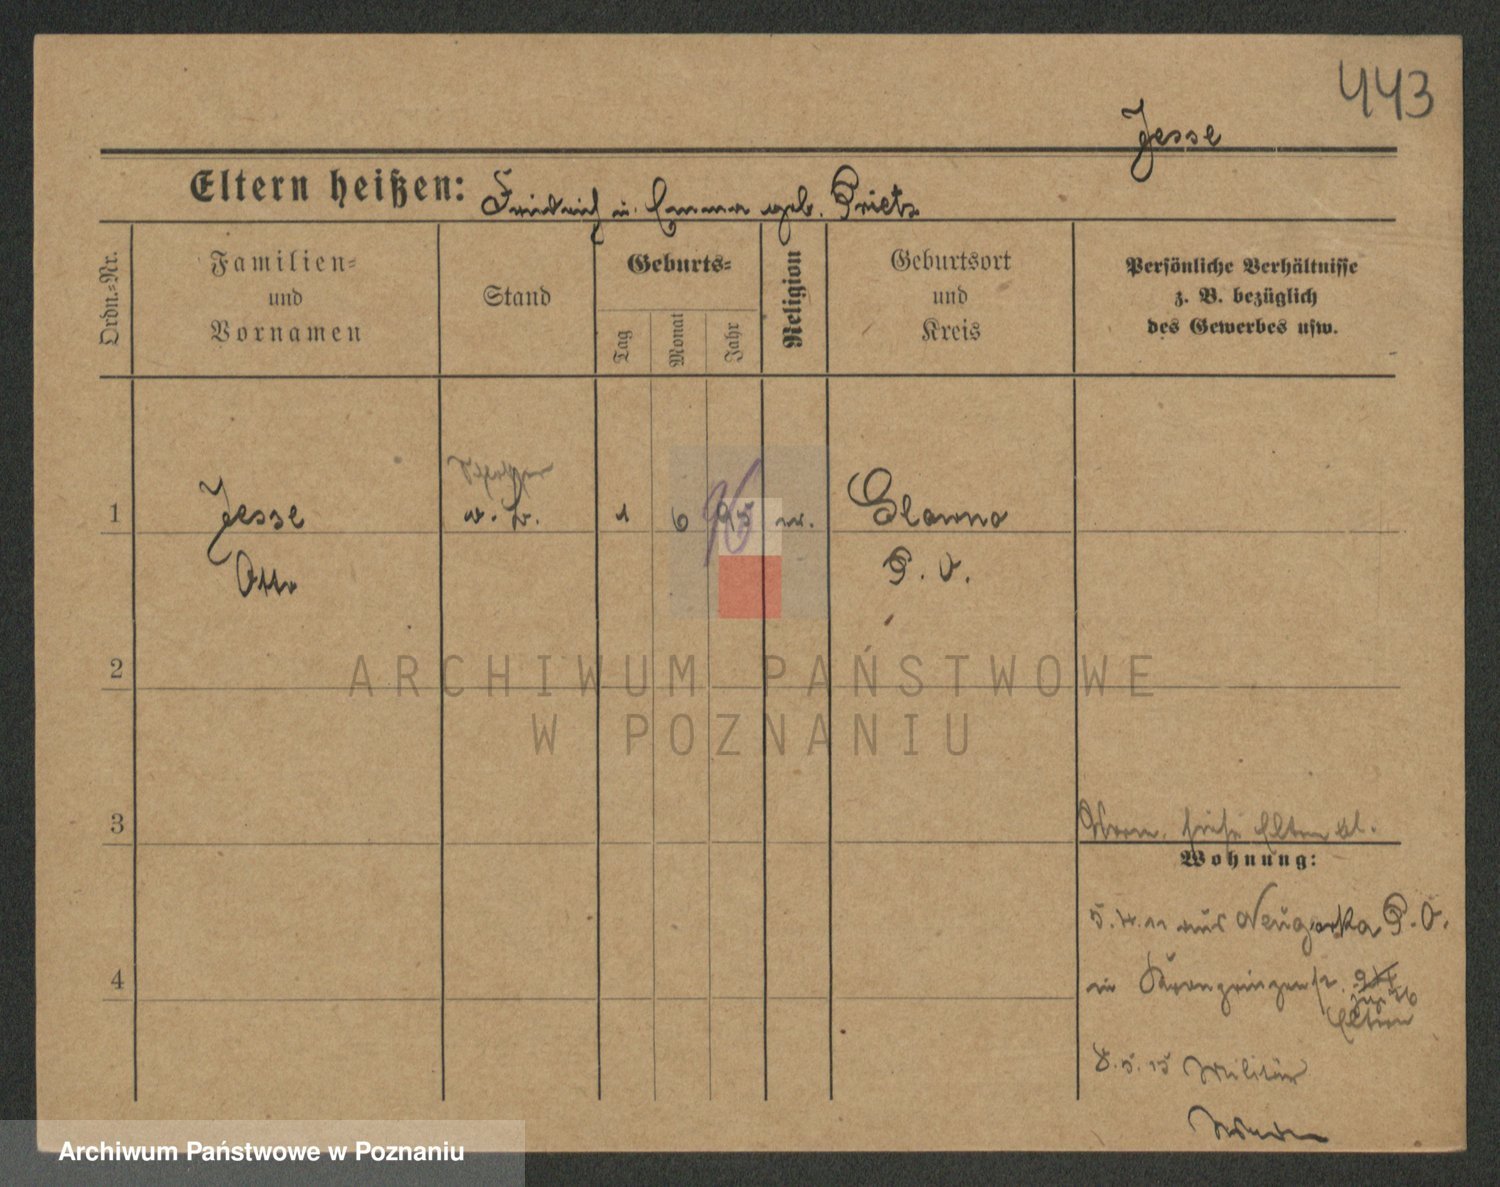 443
Jesse
Eltern heißen: Friedrich u. Emma geb. Prietz
Ordn.-Nr.
Familien-
und
Vornamen
Stand
Geburts-
Tag
Monat
Jahr
Religion
Geburtsort
und
Kreis
Persönliche Verhältnisse
z. B. bezüglich
des Gewerbes usw.
1
Jesse
Otto
1
6
95
Glowno
P. O.
ARCHIWUM PAŃSTWOWE
W POZNANIU
2
3
siehe Eltern
Wohnung:
5.4.11 aus P. O.
in Kronprinzenstr.
Eltern
4
8.5.15 Militär
Archiwum Państwowe w Poznaniu